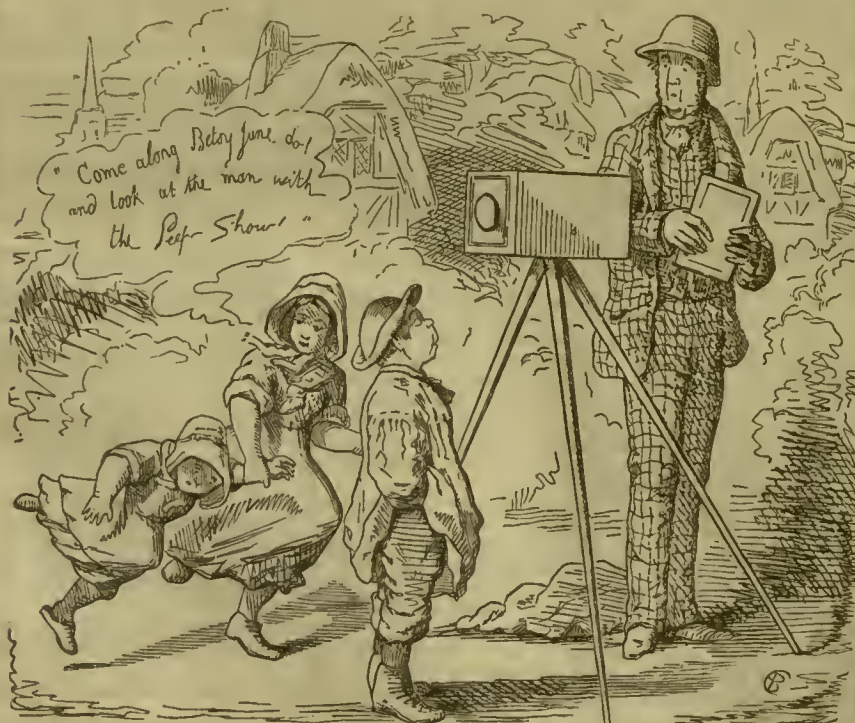 "Come along Betsy June do!
and look at the man with
the Peep Show! "